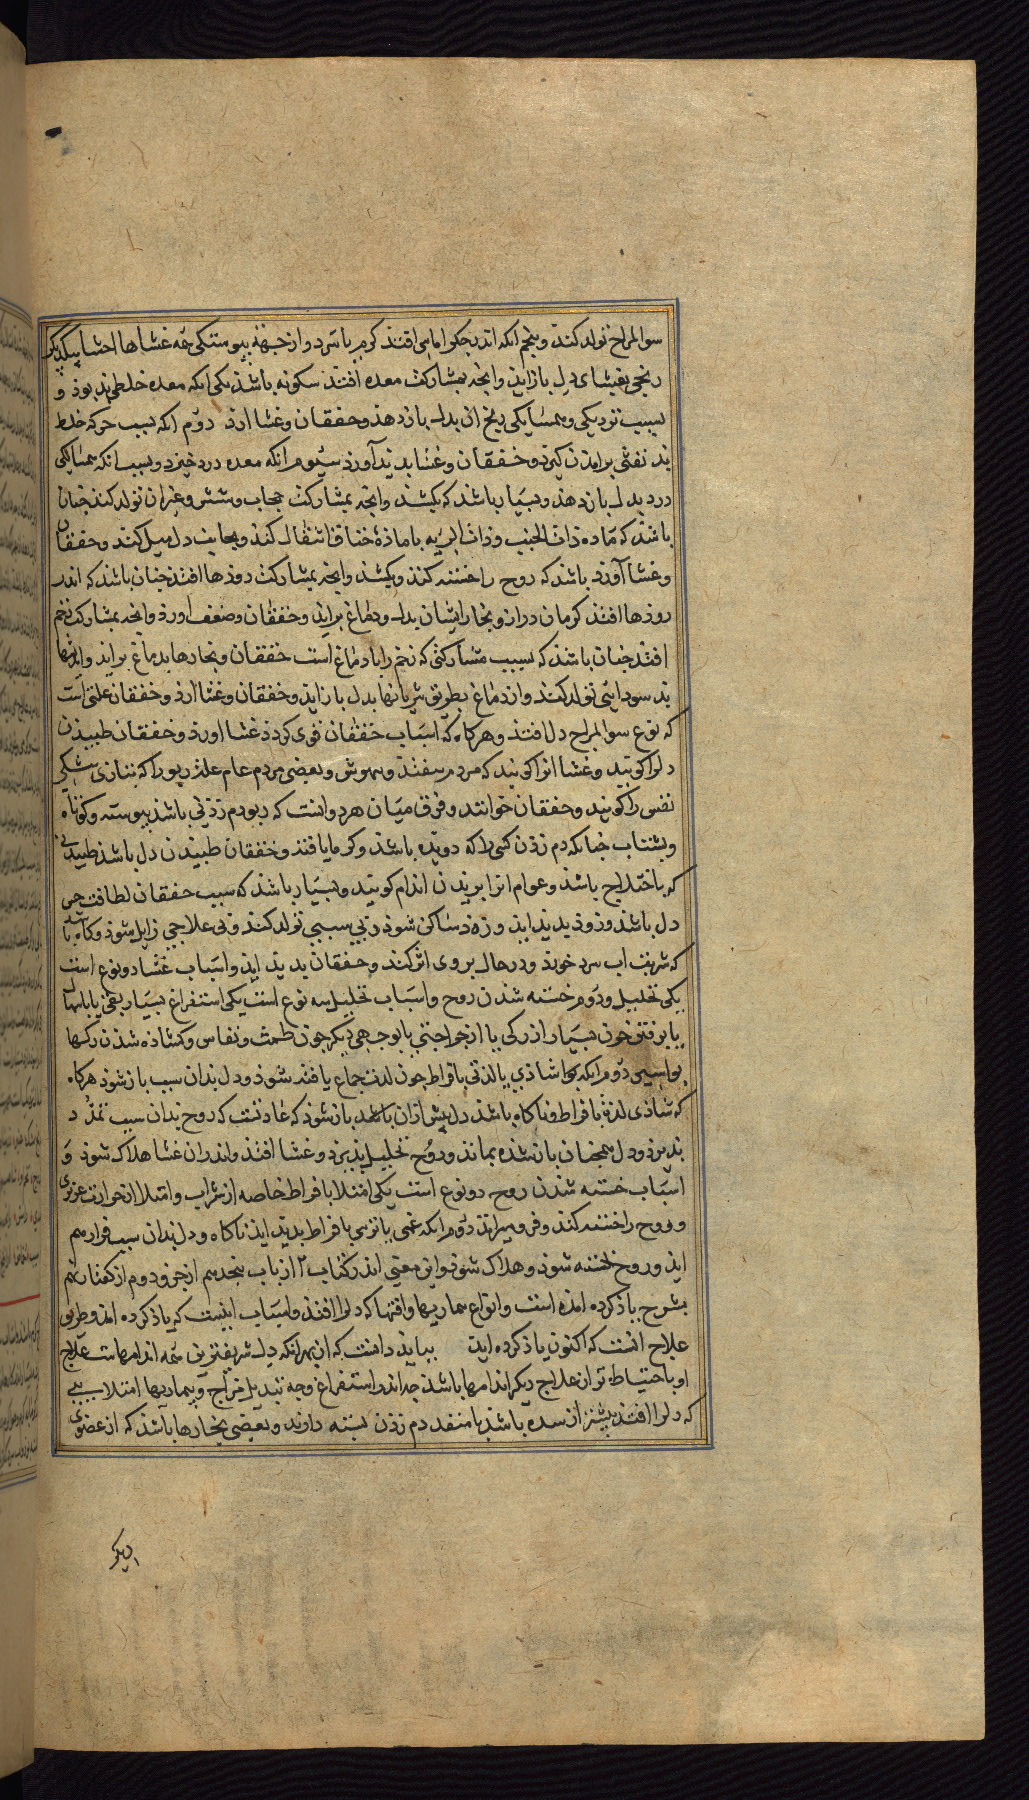 سوالمزاج تولد کند و پنجم انکه اندر جکر اماسی افتذ کرم یا سرد و از جهة پیوستکی همه غشاها احشا بیکدیکر
رنجی بغشای دل بازاید وانچه بمشارکت معده افتذ سکونه باشذ یکی انکه معده خلطی بد بوذ و
بسبب نزدیکی و همسایکی رنج ان بدل بازدهذ و خفقان و غشا ارذ دوم انکه بسبب حرکه خلط
بد نفثی برامذن کیرد و خفقان و غشا بدید آورد سیوم انکه معده درد خیزد و بسبب انکه همسایکی
درد بدل بازدهذ و بسیار باشذ که بکشذ وانچه بمشارکت حجاب و شش و غیر ان تولد کند چنان
باشذ که ماده ذات الجنب و ذات الریه یا ماذهٔ خناق انتقال کند و بجانب دل میل کند و خفقان
و غشا آورد باشذ که روح را خسته کنذ و بکشذ وانچه بمشارکت روذها افتذ چنان باشذ که اندر
روذها افتذ کرمان دراز و بخار ایشان بدل و دماغ براید و خفقان و ضعف اورذ وانچه بمشارکت رحم
افتذ چنان باشذ که بسبب مشارکتی که رحم را با دماغ است خفقان و بخارها بدماغ براید و اندیشها
بد سودایی تولد کند و از دماغ بطریق شریانها بدل بازاید و خفقان و غشا ارذ و خفقان علتی است
که نوع سوالمزاج دل افتذ و هرکاه که اسباب خفقان قوی کردذ غشا اورذ و خفقان طبیذن
دلرا کویند و غشا انرا کویند که مردم بیفتذ و بیهوش و بعضی مردم عام علت ربو را که بتازی تنکی
نفس را کویند و خفقان خوانند و فرق میان هردو انست که ربو دم زذنی باشذ پیوسته و کوتاه
و بشتاب چنانکه دم زذن کسی را که دویده باشذ و کرمایافته و خفقان طبیذن دل باشذ طبیذنی
که باختلاج باشذ و عوام انرا بریذن اندام کویند و بسیار باشذ که سبب خفقان لطافت حس
دل باشذ و زوذ بدید اید و زوذ ساکن شوذ و بی سببی تولد کند و بی علاجی زایل شوذ و کاه باشد
که شربت اب سرد خورد و درحال بروی اثر کند و خفقان بدید اید و اسباب غشا دو نوع است
یکی تحلیل و دوم خسته شدن روح و اسباب تحلیل سه نوع است یکی استفراغ بسیار بقی یا باسهال
یا برفتن خون بسیار از رکی یا از جراحتی یا بوجهی دیکر چون طمث و نفاس و کشاذه شذن رکها
بواسیر دوم انکه بواشاذی یا لذتی بافراط چون لذت جماع یافته شوذ و دل بدان سبب بازشوذ هرکاه
که شاذی لذة بافراط و ناکاه باشذ دل بیش ازان بازشوذ که عادتست که روح بدان سبب
بذیرذ و دل همچنان بازشذه بماند و روح تحلیل پذیرد و غشا افتذ و اندران غشا هلاک شوذ و
اسباب خسته شذن روح دو نوع است یکی امتلا بافراط خاصه از شراب و امتلا ان حرارت غریزی
و روح را خسته کند و فرومیراند دوم انکه غمی یا ترسی بافراط بدید اید ناکاه و دل بدان سبب فراهم
اید و روح خسته شود و هلاک شوذ و این معنی اندر کتاب ۲ از باب پنجدهم از جزو دوم از کفتار پنجم
بشرح یاذکرده امذه است و انواع بیماریها و افتها که دلرا افتذ و اسباب اینست که یاذ کرده امد و طریق
علاج انست که اکنون یاذ کرده اید بباید دانست که از بهر انکه دل شریفترین همه اندامهاست علاج
او باحتیاط تر از علاج دیکر اندامها باشذ چه اندر استفراغ و چه تبدیل مزاج و بیماریها امتلایی
که دلرا افتذ بیشتر از سده باشذ یا منفد دم زذن بسته دارند و بعضی بخارها باشذ که از عضوی
دیکر